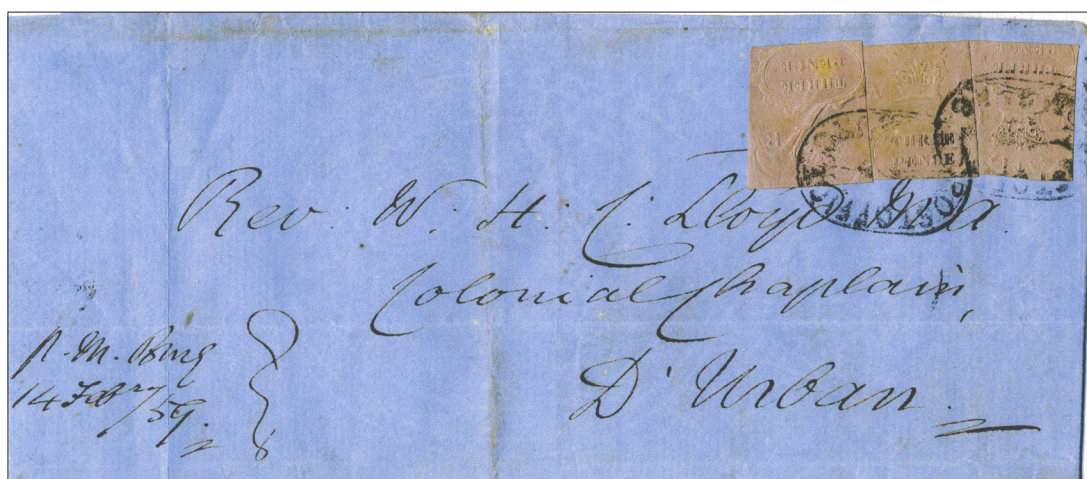 THREE
PENCE
THREE
PENCE
THREE
PENCE
POSTOFFICE
Rev. W. H. C. Lloyd M.A.
Colonial Chaplain,
D'Urban
P. M. Burg
14 Feby/59.